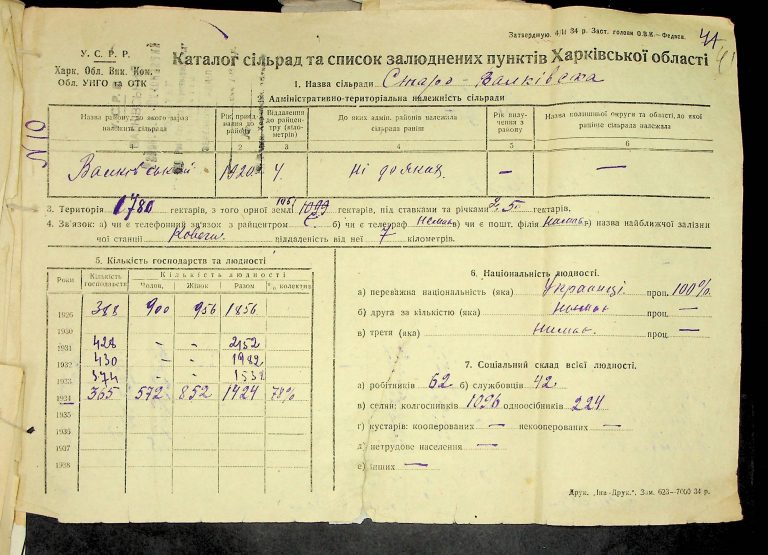 Затверджую. 4/II 34 р. Заст. голови О.В.К.—Федяєв.
41
У. С. Р. Р.
Харк. Обл. Вик. Ком.
Обл. УНГО та ОТК
Каталог сільрад та список залюднених пунктів Харківської області
1. Назва сільради Старо-Валківська
Адміністративно-територіальна належність сільради
N10
Назва району, до якого зараз належить сільрада
Рік, приєднання до району
Віддалення до райцентру (кілометрів)
До яких адмін. районів належала сільрада раніш
Рік вилучення з району
Назва колишньої округи та області, до якої раніше сільрада належала
1 2 3 4 5 6
Валківський 1920 4. ні до яких — —
3. Територія 1780 гектарів, з того орної землі 1099 гектарів, під ставками та річками 2,5 гектарів.
4. Зв'язок: а) чи є телефонний зв'язок з райцентром Є. б) чи є телеграф немає в) чи є пошт. філія немає г) назва найближчої залізни
чної станції Ковяги віддаленість від неї 7 кілометрів.
5. Кількість господарств та людності
Роки Кількість господарств Кількість людності
Чолов. Жінок Разом % колектив.
1926 388 900 956 1856
1931 428 - - 2152
1932 430 - - 1982
1933 374 - - 1538
1934 365 572 852 1424 78%
1935
1936
1937
1938
6. Національність людності.
а) переважна національність (яка) Українці проц. 100%
б) друга за кількістю (яка) немає проц. —
в) третя (яка) немає проц. —
7. Соціальний склад всієї людності.
а) робітників 62 б) службовців 42
в) селян: колгоспників 1096 одноосібників 224
г) кустарів: кооперованих — некооперованих —
д) нетрудове населення —
е) інших —
Друк. „Інв-Друк.". Зам. 623—7000 34 р.